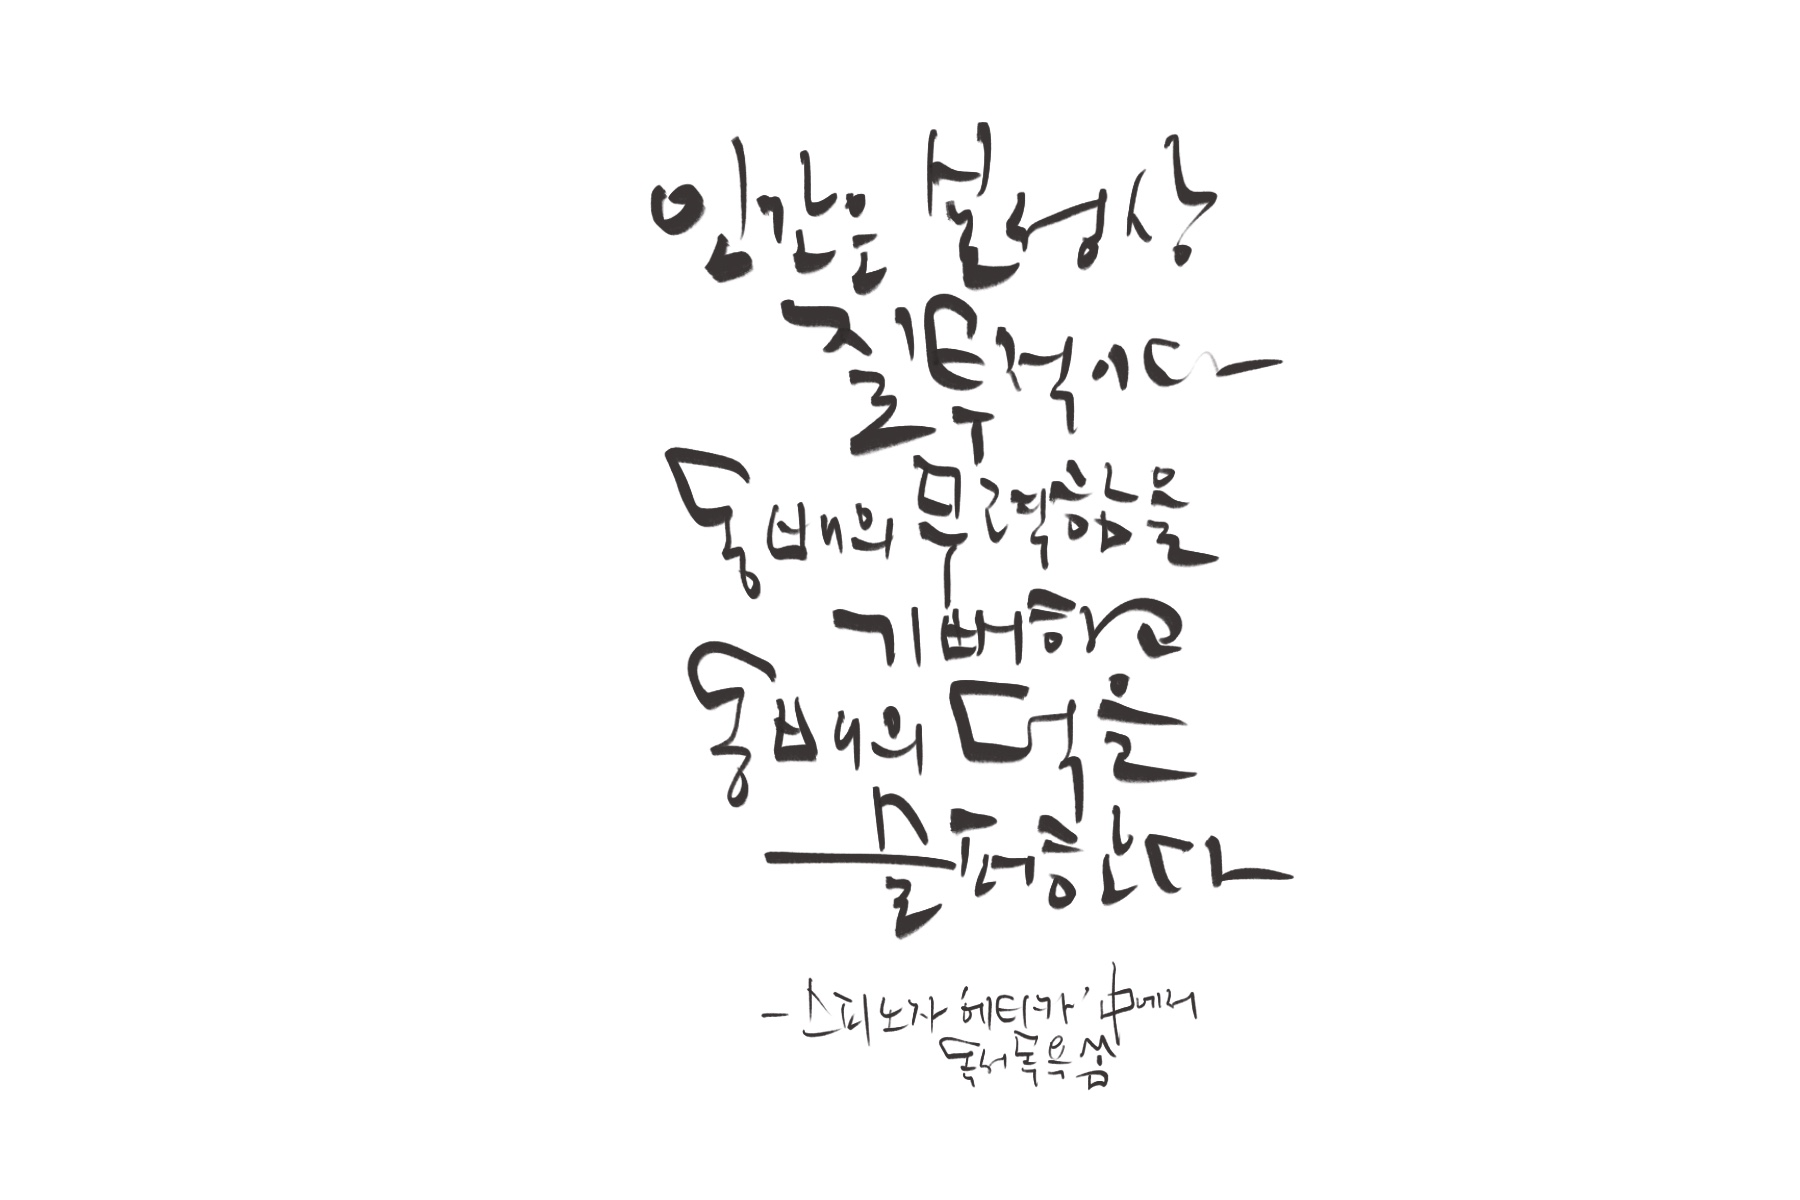 인간은 본성상
질투적이다
동배의 무력함을
기뻐하고
동배의 덕을
슬퍼한다
- 스피노자 '에티카' 中에서
독서목욕 씀